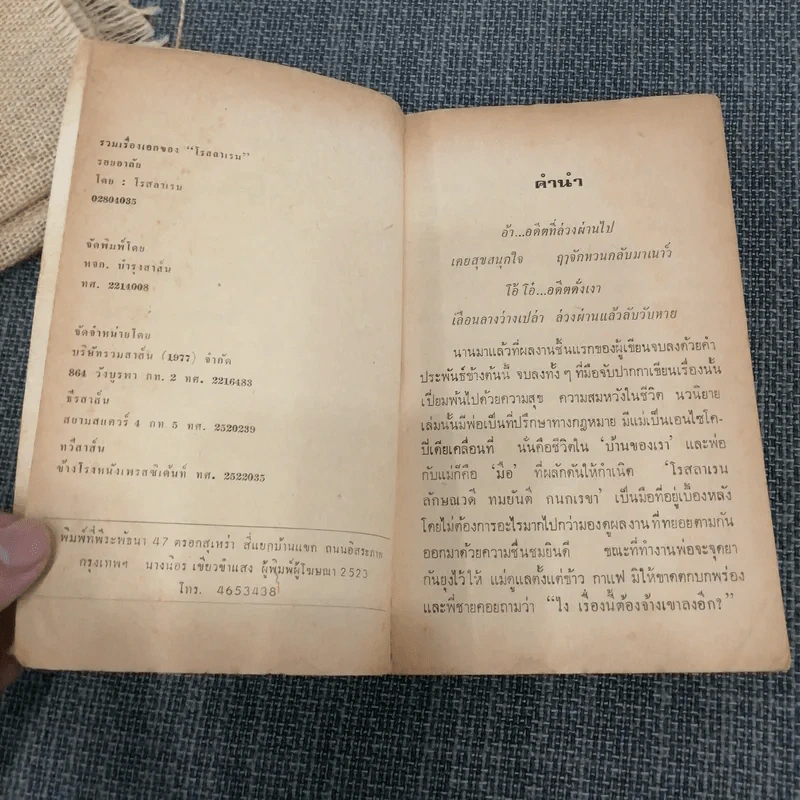 รวมเรื่องเอกของ “โรสลาเรน”
รอยอาลัย
โดย : โรสลาเรน
02804035
จัดพิมพ์โดย
หจก. บำรุงสาส์น
ทศ. 2214008
จัดจำหน่ายโดย
บริษัทรวมสาส์น (1977) จำกัด
864 วังบูรพา กท. 2 ทศ. 2216483
ธีรสาส์น
สยามสแควร์ 4 กท 5 ทศ. 2520239
ทวีสาส์น
ข้างโรงหนังเพรสซิเด้นท์ ทศ. 2522035
พิมพ์ที่พีระพัธนา 47 ตรอกสุเหร่า สี่แยกบ้านแขก ถนนอิสระภาพ
กรุงเทพฯ นางนิอร เขียวขำแสง ผู้พิมพ์ผู้โฆษณา 2523
โทร. 4653438
คำนำ
อ้า...อดีตที่ล่วงผ่านไป
เคยสุขสนุกใจ ฤๅจักหวนกลับมาเนาว์
โอ้ โอ๋...อดีตดั่งเงา
เลือนลางว่างเปล่า ล่วงผ่านแล้วลับวับหาย
นานมาแล้วที่ผลงานชิ้นแรกของผู้เขียนจบลงด้วยคำ
ประพันธ์ข้างต้นนี้ จบลงทั้ง ๆ ที่มือจับปากกาเขียนเรื่องนั้น
เปี่ยมพ้นไปด้วยความสุข ความสมหวังในชีวิต นวนิยาย
เล่มนั้นมีพ่อเป็นที่ปรึกษาทางกฎหมาย มีแม่เป็นเอนไซโค-
ปีเดียเคลื่อนที่ นั่นคือชีวิตใน ‘บ้านของเรา’ และพ่อ
กับแม่ก็คือ ‘มือ’ ที่ผลักดันให้กำเนิด ‘โรสลาเรน
ลักษณวดี ทมยันตี กนกเรขา’ เป็นมือที่อยู่เบื้องหลัง
โดยไม่ต้องการอะไรมากไปกว่ามองดูผลงานที่ทยอยตามกัน
ออกมาด้วยความชื่นชมยินดี ขณะที่ทำงานพ่อจะจุดยา
กันยุงไว้ให้ แม่ดูแลตั้งแต่ข้าว กาแฟ มิให้ขาดตกบกพร่อง
และพี่ชายคอยถามว่า “ไง เรื่องนี้ต้องจ้างเขาลงอีก?”